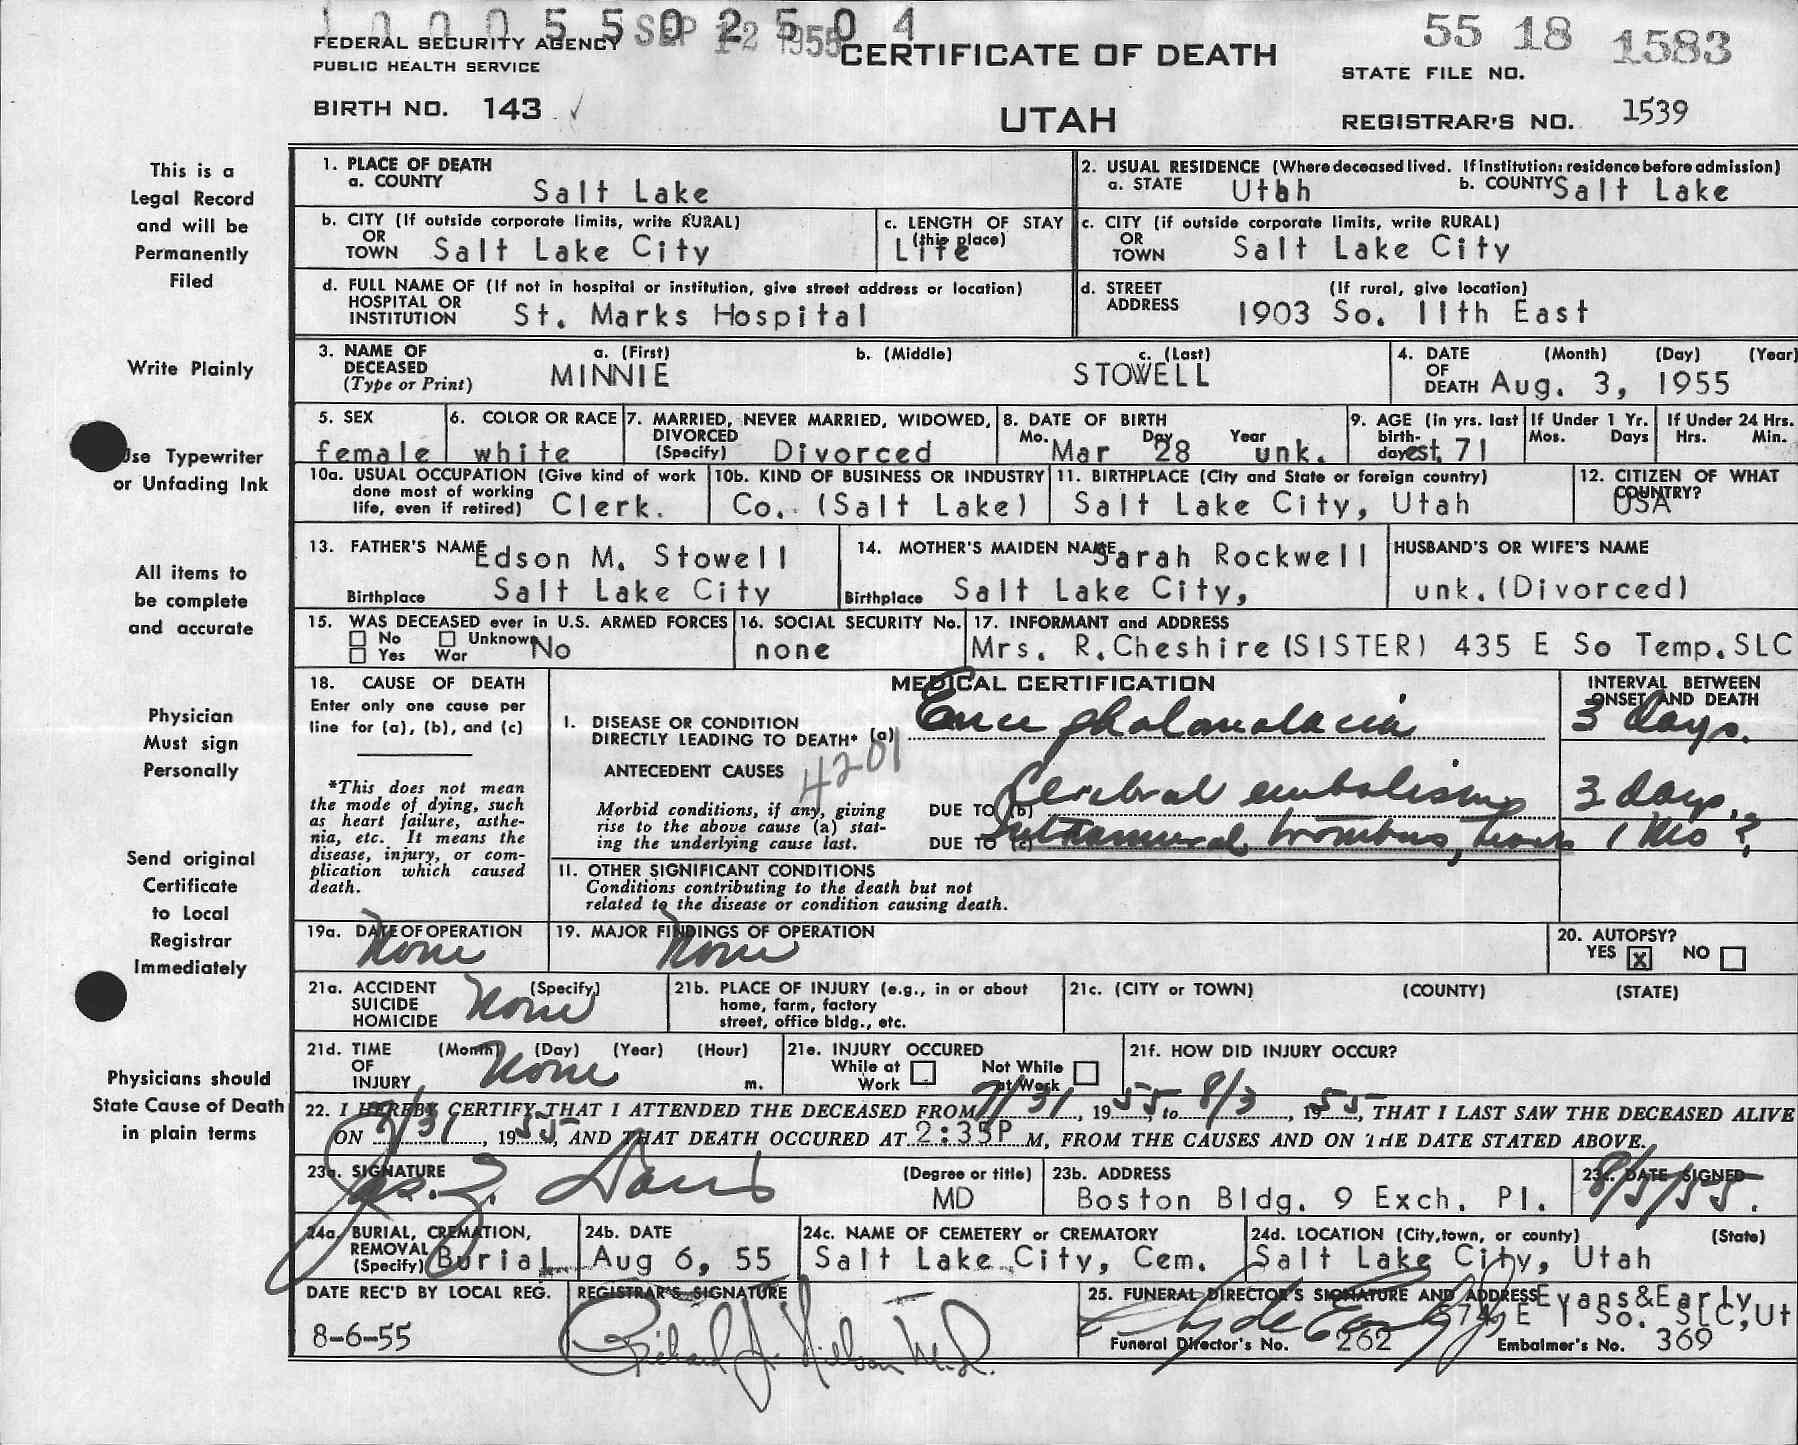 1 0 0 0 5 5 0 2 5 0 4
SEP 12 1955
55 18 1583
FEDERAL SECURITY AGENCY
PUBLIC HEALTH SERVICE
CERTIFICATE OF DEATH
STATE FILE NO.
BIRTH NO. 143 ✓
UTAH
REGISTRAR'S NO. 1539
This is a
Legal Record
and will be
Permanently
Filed
Write Plainly
Use Typewriter
or Unfading Ink
All items to
be complete
and accurate
Physician
Must sign
Personally
Send original
Certificate
to Local
Registrar
Immediately
Physicians should
State Cause of Death
in plain terms
1. PLACE OF DEATH
a. COUNTY Salt Lake
2. USUAL RESIDENCE (Where deceased lived. If institution: residence before admission)
a. STATE Utah b. COUNTY Salt Lake
b. CITY (If outside corporate limits, write RURAL)
OR
TOWN Salt Lake City
c. LENGTH OF STAY
(this place)
Life
c. CITY (if outside corporate limits, write RURAL)
OR
TOWN Salt Lake City
d. FULL NAME OF (If not in hospital or institution, give street address or location)
HOSPITAL OR
INSTITUTION St. Marks Hospital
d. STREET (If rural, give location)
ADDRESS 1903 So. 11th East
3. NAME OF a. (First) b. (Middle) c. (Last)
DECEASED MINNIE STOWELL
(Type or Print)
4. DATE (Month) (Day) (Year)
OF
DEATH Aug. 3, 1955
5. SEX
female
6. COLOR OR RACE
white
7. MARRIED, NEVER MARRIED, WIDOWED,
DIVORCED
(Specify) Divorced
8. DATE OF BIRTH
Mo. Day Year
Mar 28 unk.
9. AGE (in yrs. last
birth-
day est. 71
If Under 1 Yr.
Mos. Days
If Under 24 Hrs.
Hrs. Min.
10a. USUAL OCCUPATION (Give kind of work
done most of working
life, even if retired) Clerk.
10b. KIND OF BUSINESS OR INDUSTRY
Co. (Salt Lake)
11. BIRTHPLACE (City and State or foreign country)
Salt Lake City, Utah
12. CITIZEN OF WHAT
COUNTRY?
USA
13. FATHER'S NAME Edson M. Stowell
Birthplace Salt Lake City
14. MOTHER'S MAIDEN NAME Sarah Rockwell
Birthplace Salt Lake City,
HUSBAND'S OR WIFE'S NAME
unk. (Divorced)
15. WAS DECEASED ever in U.S. ARMED FORCES
No Unknown No
Yes War
16. SOCIAL SECURITY No.
none
17. INFORMANT and ADDRESS
Mrs. R.Cheshire (SISTER) 435 E So Temp. SLC
18. CAUSE OF DEATH
Enter only one cause per
line for (a), (b), and (c)
*This does not mean
the mode of dying, such
as heart failure, asthe-
nia, etc. It means the
disease, injury, or com-
plication which caused
death.
MEDICAL CERTIFICATION
INTERVAL BETWEEN
ONSET AND DEATH
I. DISEASE OR CONDITION
DIRECTLY LEADING TO DEATH* (a) Encephalomalacia 3 days.
ANTECEDENT CAUSES 4201
Morbid conditions, if any, giving
rise to the above cause (a) stat-
ing the underlying cause last.
DUE TO (b) Cerebral embolism 3 days.
DUE TO (c) Intramural trombus, heart 1 Mo ?
II. OTHER SIGNIFICANT CONDITIONS
Conditions contributing to the death but not
related to the disease or condition causing death.
19a. DATE OF OPERATION
None
19. MAJOR FINDINGS OF OPERATION
None
20. AUTOPSY?
YES X NO
21a. ACCIDENT (Specify)
SUICIDE
HOMICIDE None
21b. PLACE OF INJURY (e.g., in or about
home, farm, factory
street, office bldg., etc.
21c. (CITY or TOWN) (COUNTY) (STATE)
21d. TIME (Month) (Day) (Year) (Hour)
OF
INJURY None m.
21e. INJURY OCCURED
While at Not While
Work at Work
21f. HOW DID INJURY OCCUR?
22. I HEREBY CERTIFY THAT I ATTENDED THE DECEASED FROM 7/31, 1955 to 8/3, 1955, THAT I LAST SAW THE DECEASED ALIVE
ON 7/31, 1955, AND THAT DEATH OCCURED AT 2:35P M, FROM THE CAUSES AND ON THE DATE STATED ABOVE.
23a. SIGNATURE (Degree or title)
Jas. Z. Davis MD
23b. ADDRESS
Boston Bldg. 9 Exch. Pl.
23c. DATE SIGNED
8/5/55.
24a. BURIAL, CREMATION,
REMOVAL
(Specify) Burial
24b. DATE
Aug 6, 55
24c. NAME OF CEMETERY or CREMATORY
Salt Lake City, Cem.
24d. LOCATION (City, town, or county) (State)
Salt Lake City, Utah
DATE REC'D BY LOCAL REG.
8-6-55
REGISTRAR'S SIGNATURE
Richard J. Nilson M.D.
25. FUNERAL DIRECTOR'S SIGNATURE AND ADDRESS Evans&Early
Clyde Early 574 E 1 So. SLC,Ut
Funeral Director's No. 262 Embalmer's No. 369